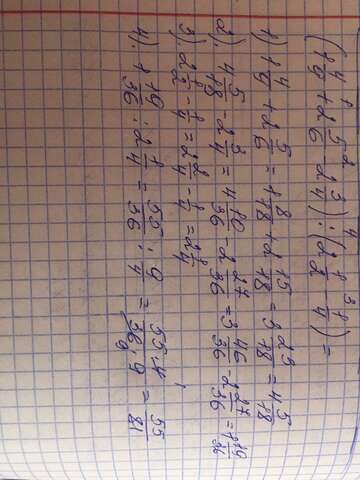 (1 4/9 + 2 5/6 - 2 3/4) : (2 1/2 - 1/4) =
1) 1 4/9 + 2 5/6 = 1 8/18 + 2 15/18 = 3 23/18 = 4 5/18
2). 4 5/18 - 2 3/4 = 4 10/36 - 2 27/36 = 3 46/36 - 2 27/36 = 1 19/36
3). 2 1/2 - 1/4 = 2 2/4 - 1/4 = 2 1/4
4). 1 19/36 : 2 1/4 = 55/36 : 9/4 = 55·4/36·9 = 55/81